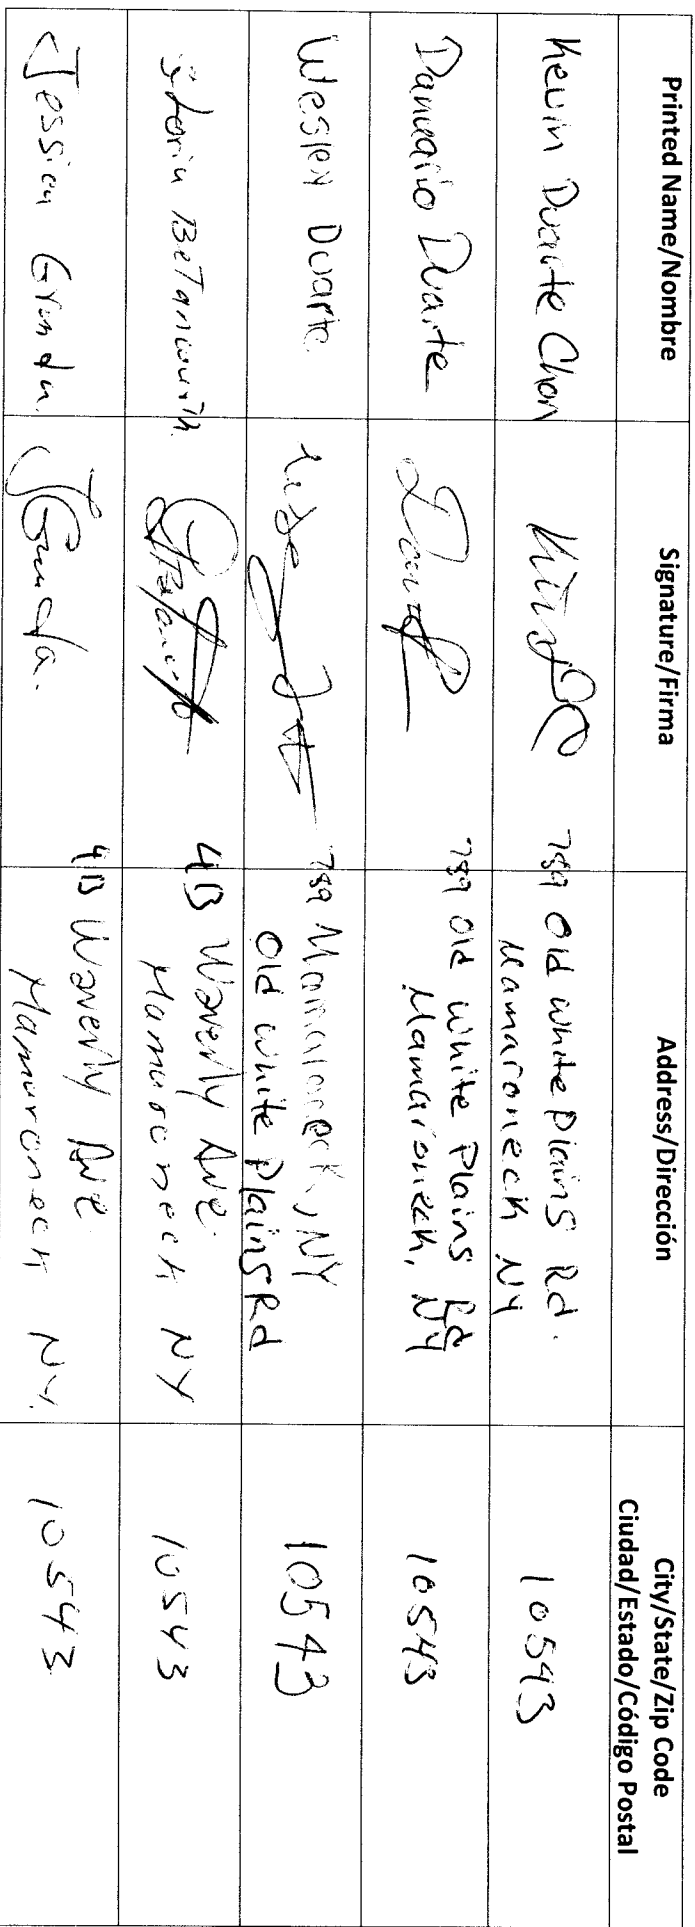 Printed Name/Nombre
Signature/Firma
Address/Dirección
City/State/Zip Code
Ciudad/Estado/Código Postal
Kevin Duarte Chon
789 Old White Plains Rd.
Mamaroneck NY
10543
Duarte
789 Old White Plains Rd
Mamaroneck, NY
10543
Wesley Duarte
789 Mamaroneck, NY
Old White Plains Rd
10543
4B Waverly Ave.
Mamaroneck NY
10543
Jessica Granda.
JGranda.
4B Waverly Ave
Mamaroneck NY.
10543